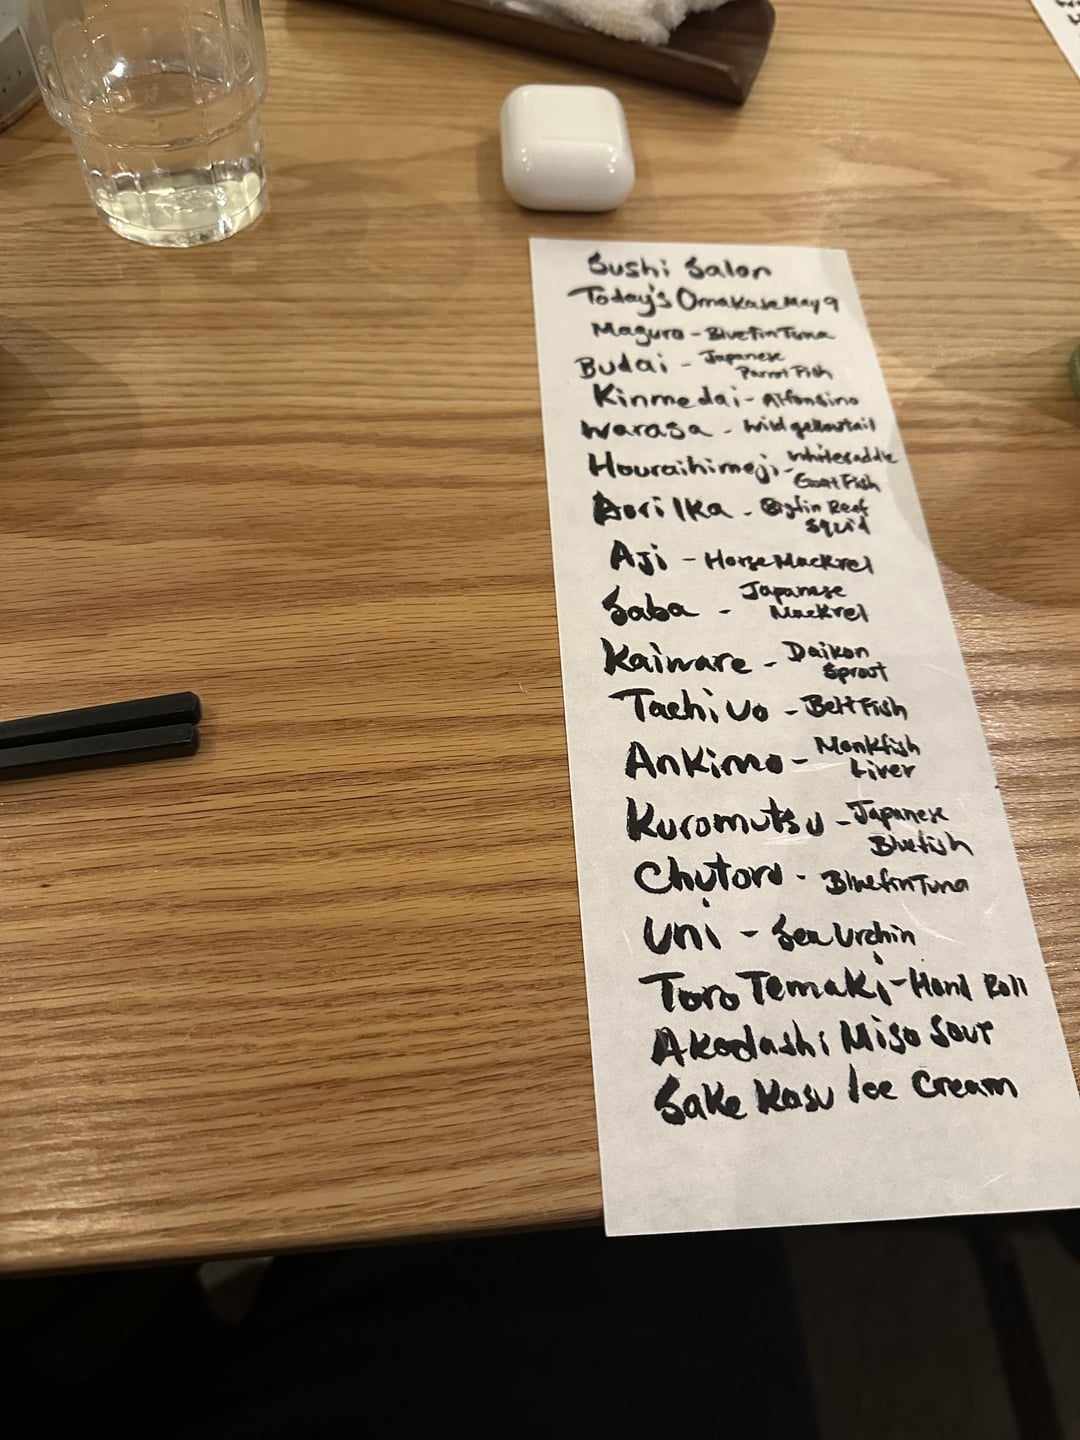 Sushi Salon
Today's Omakase May 9
Maguro - Bluefin Tuna
Budai - Japanese
Parrot Fish
Kinmedai - Alfonsino
Warasa - Wild yellowtail
Houraihimeji - Whitesaddle
Goat Fish
Aori Ika - Bigfin Reef
Squid
Aji - Horse Mackrel
Saba - Japanese
Mackrel
Kaiware - Daikon
Sprout
Tachi Uo - Belt Fish
Ankimo - Monkfish
Liver
Kuromutsu - Japanese
Bluefish
Chutoro - Bluefin Tuna
Uni - Sea Urchin
Toro Temaki - Hand Roll
Akadashi Miso Sour
Sake Kasu Ice Cream